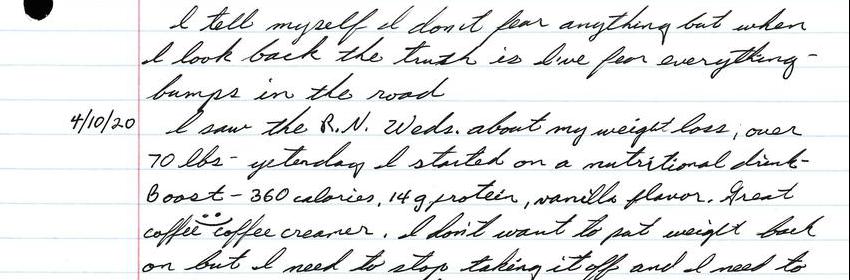 I tell myself I don't fear anything but when
I look back the truth is I've fear everything -
bumps in the road
4/10/20 I saw the R.N. Weds. about my weight loss, over
70 lbs - yeterday I started on a nutritional drink -
Boost - 360 calories, 14 g protein, vanilla flavor. Great
coffee coffee creamer. I don't want to put weight back
on but I need to stop taking it off and I need to